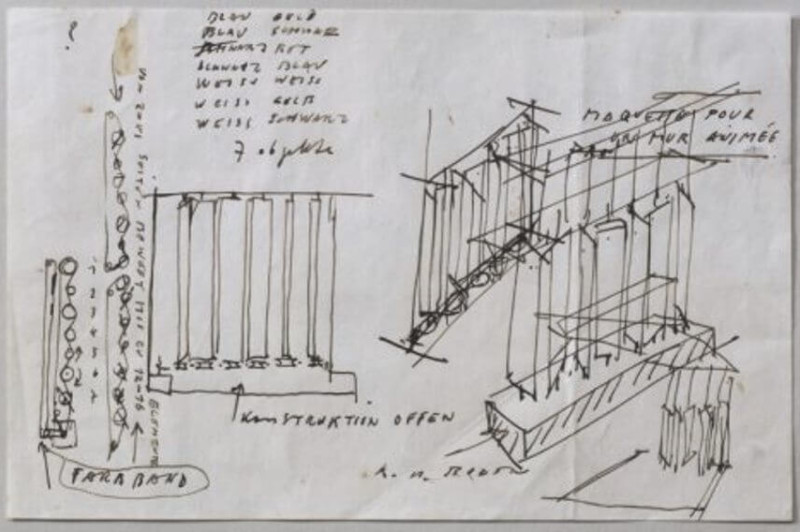 ?
BLAU GELB
BLAU SCHWARZ
SCHWARZ ROT
SCHWARZ BLAU
WEISS WEISS
WEISS GELB
WEISS SCHWARZ
7 objekte
MAQUETTE POUR
UN MUR ANIMÉE
VON ZWEI SEITEN BEWEGT
ELEMENTE
1
2
3
4
5
6
7
KONSTRUKTION OFFEN
FARBBAND